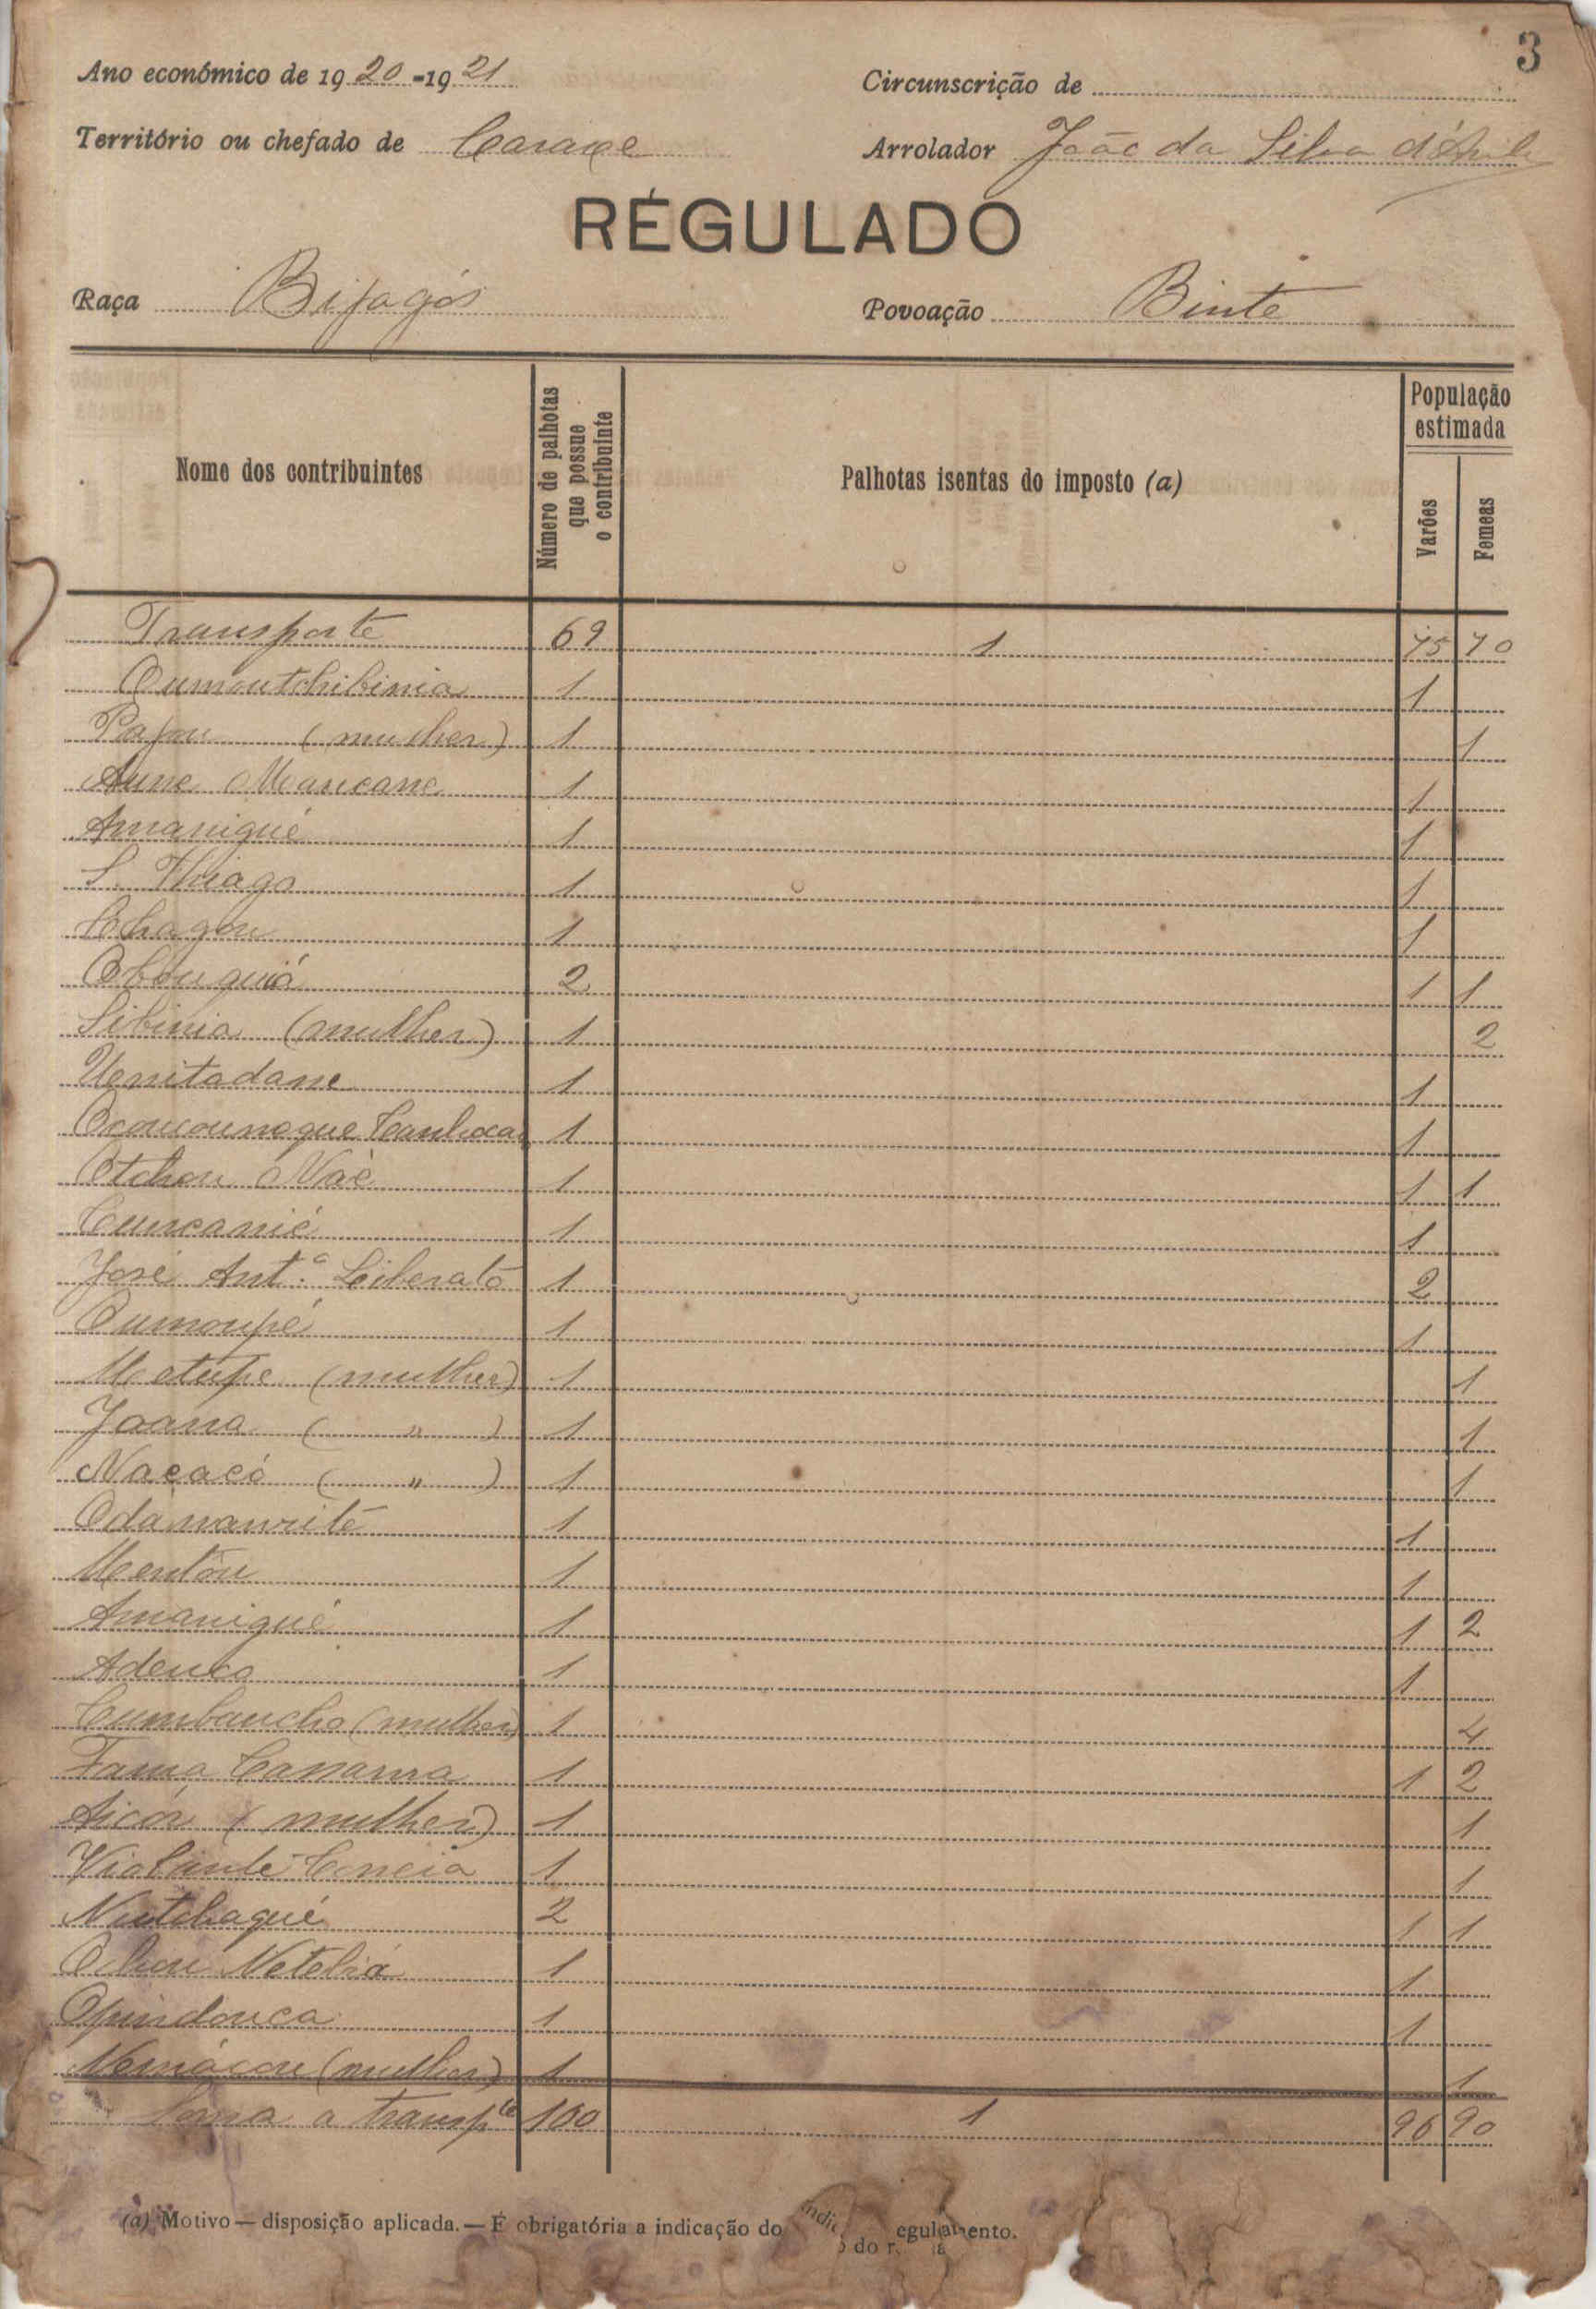 3
Ano económico de 1920-1921
Circunscrição de
Território ou chefado de Caraxe
Arrolador João da Silva d'
RÉGULADO
Raça Bijagós
Povoação Binte
Nome dos contribuintes
Número de palhotas que possue o contribuinte
Palhotas isentas do imposto (a)
População estimada
Varões
Femeas
Transporte 69 1 75 70
Oumoutchibinia 1 1
Pajou (mulher) 1 1
Aune Maucane 1 1
Amaniguè 1 1
S. Thiago 1 1
1 1
2 1 1
Sibinia (mulher) 1 2
Uenitadane 1 1
1 1
Otchou Naè 1 1 1
Cuncanié 1 1
José Ant.º Liberato 1 2
Oumoupé 1 1
(mulher) 1 1
Joana ( " ) 1 1
Nacacó ( " ) 1 1
1 1
Mentóu 1 1
Amaniguè 1 1 2
Adeuco 1 1
Cumbancho (mulher) 1 4
Fama Canama 1 1 2
Aicór (mulher) 1 1
Violante Correia 1 1
Nutchaguè 2 1 1
1 1
Opindouca 1 1
(mulher) 1 1
Soma a transpte 100 1 96 90
(a) Motivo — disposição aplicada. — É obrigatória a indicação do
do r egulamento.